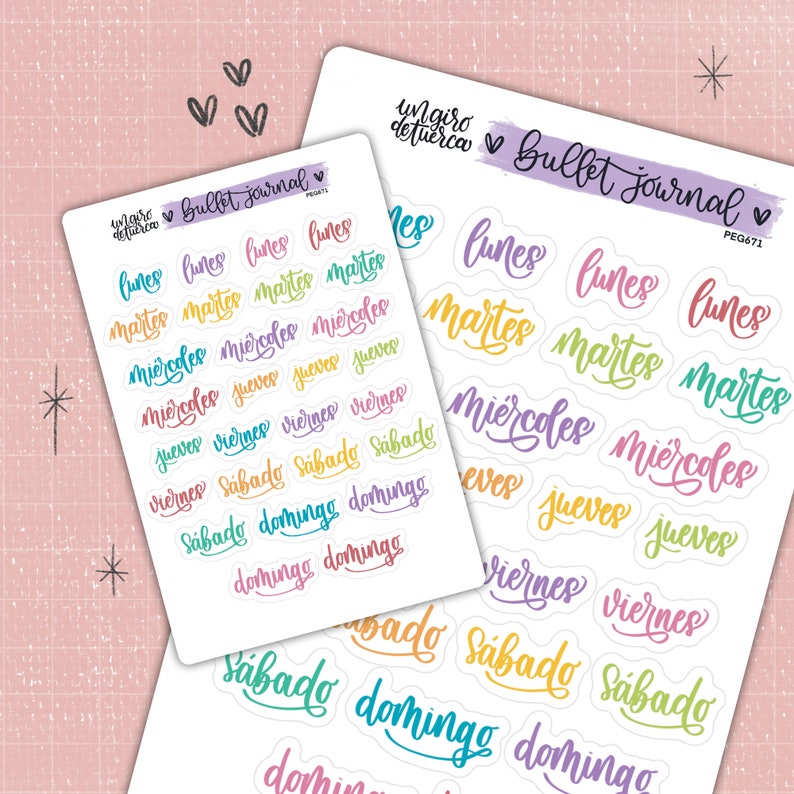 un giro
detuerca
bullet journal
PEG671
lunes lunes lunes lunes
martes martes martes martes
miércoles miércoles miércoles
miércoles jueves jueves jueves
jueves viernes viernes viernes
viernes sábado sábado sábado
sábado domingo domingo
domingo domingo
un giro
detuerca
bullet journal
PEG671
lunes lunes lunes
martes martes martes
miércoles miércoles
jueves jueves
viernes viernes
sábado sábado sábado
sábado domingo domingo
domingo